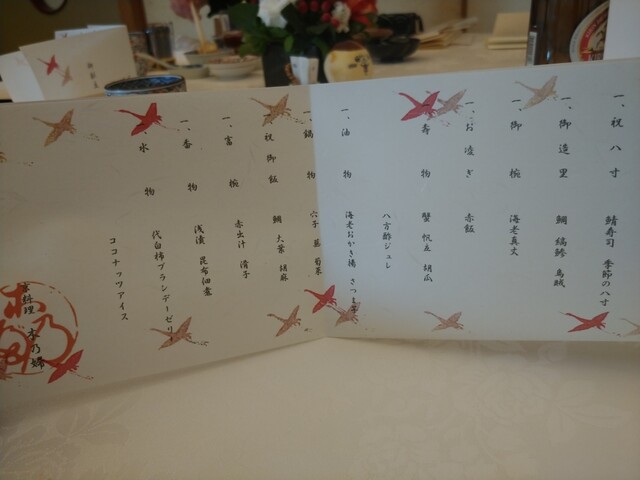 一、祝八寸 鯖寿司 季節の八寸
一、御造里 鯛 縞鯵 烏賊
一、御椀 海老真丈
一、お凌ぎ 赤飯
一、寿物 蟹 帆立 胡瓜
八方酢ジュレ
一、油物 海老おかき揚 さつま芋
一、鍋物
祝御飯 鯛 大葉 胡麻
一、富椀 赤出汁 滑子
一、香物 浅漬 昆布佃煮
一、水物 代白柿ブランデーゼリー
ココナッツアイス
京料理 木乃婦